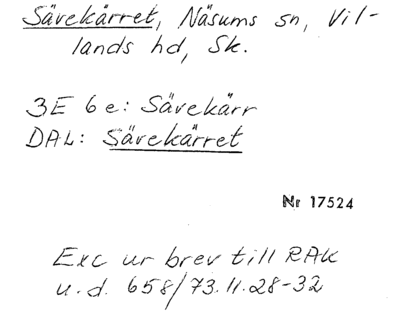 Sävekärret, Näsums sn, Vil-
lands hd, Sk.
3E 6e: Sävekärr
DAL: Sävekärret
Nr 17524
Exc ur brev till RAK
u.d. 658/73.11.28-32